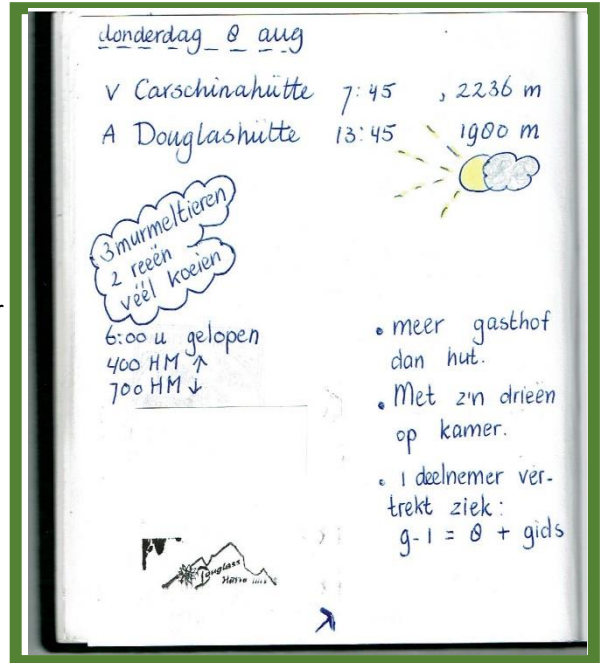 donderdag 8 aug
V Carschinahütte 7:45 , 2236 m
A Douglashütte 13:45 1980 m
3 murmeltieren
2 reeën
véél koeien
6:00 u gelopen
400 HM ↑
700 HM ↓
• meer gasthof
dan hut.
• Met z'n drieën
op kamer.
• 1 deelnemer ver-
trekt ziek:
9-1 = 8 + gids
Douglass
Hütte